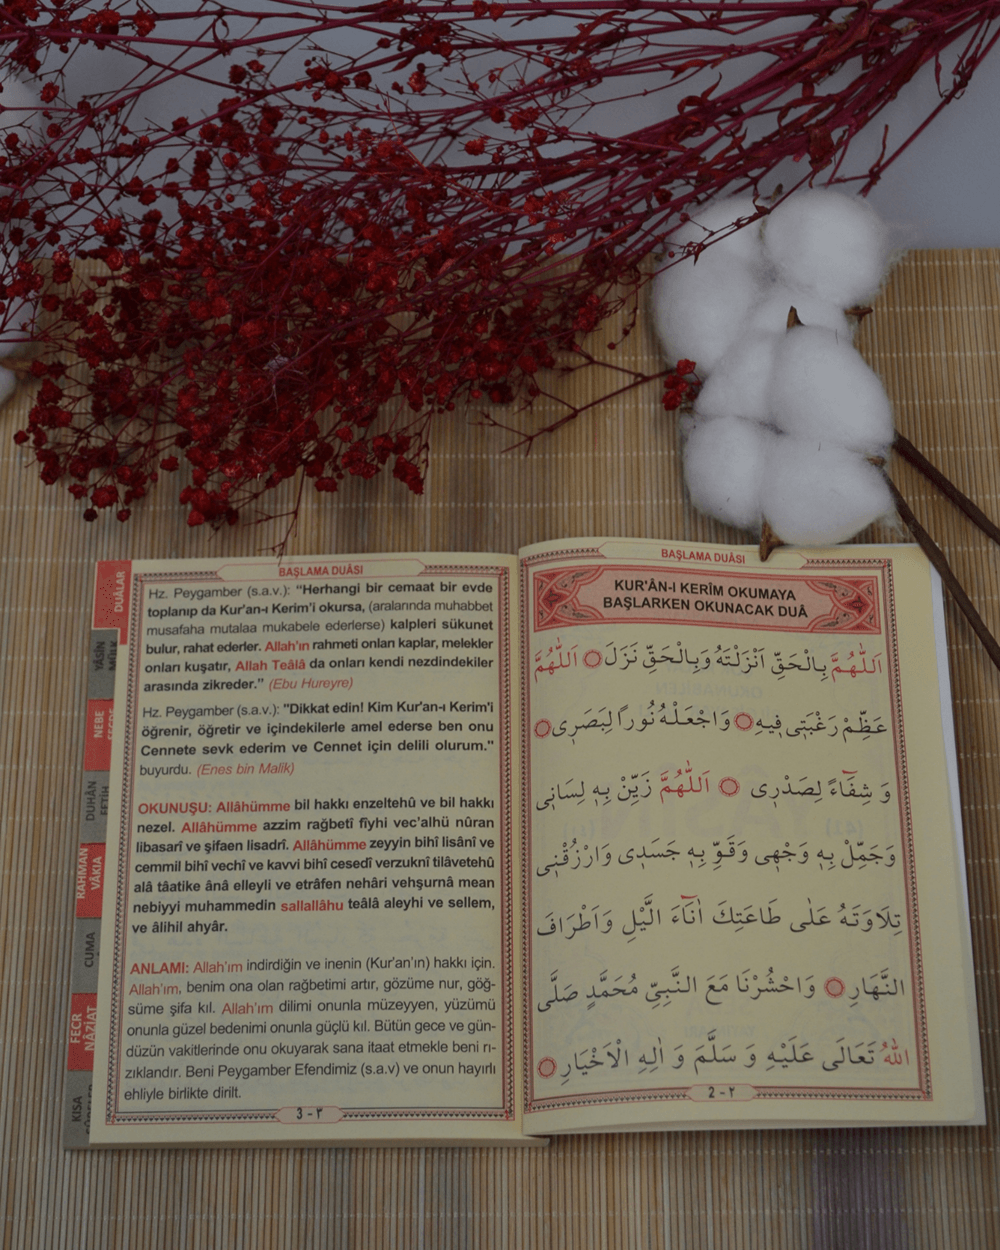 BAŞLAMA DUÂSI
KUR'ÂN-I KERÎM OKUMAYA
BAŞLARKEN OKUNACAK DUÂ
اَللّٰهُمَّ بِالْحَقِّ اَنْزَلْتَهُ وَبِالْحَقِّ نَزَلَ ۞ اَللّٰهُمَّ
عَظِّمْ رَغْبَتٖى فٖيهِ ۞ وَاجْعَلْهُ نُوراً لِبَصَرٖى ۞
وَ شِفَٓاءً لِصَدْرٖى ۞ اَللّٰهُمَّ زَيِّنْ بِهٖ لِسَانٖى
وَجَمِّلْ بِهٖ وَجْهٖى وَقَوِّ بِهٖ جَسَدٖى وَارْزُقْنٖى
تِلَاوَتَهُ عَلٰى طَاعَتِكَ اٰنَٓاءَ الَّيْلِ وَاَطْرَافَ
النَّهَارِ ۞ وَاحْشُرْنَا مَعَ النَّبِيِّ مُحَمَّدٍ صَلَّى
اللّٰهُ تَعَالَى عَلَيْهِ وَ سَلَّمَ وَ اٰلِهِ الْاَخْيَارِ ۞
2 - ٢
BAŞLAMA DUÂSI
Hz. Peygamber (s.a.v.): "Herhangi bir cemaat bir evde
toplanıp da Kur'an-ı Kerim'i okursa, (aralarında muhabbet
musafaha mutalaa mukabele ederlerse) kalpleri sükunet
bulur, rahat ederler. Allah'ın rahmeti onları kaplar, melekler
onları kuşatır, Allah Teâlâ da onları kendi nezdindekiler
arasında zikreder." (Ebu Hureyre)
Hz. Peygamber (s.a.v.): "Dikkat edin! Kim Kur'an-ı Kerim'i
öğrenir, öğretir ve içindekilerle amel ederse ben onu
Cennete sevk ederim ve Cennet için delili olurum."
buyurdu. (Enes bin Malik)
OKUNUŞU: Allâhümme bil hakkı enzeltehû ve bil hakkı
nezel. Allâhümme azzim rağbetî fîyhi vec'alhü nûran
libasarî ve şifaen lisadrî. Allâhümme zeyyin bihî lisânî ve
cemmil bihî vechî ve kavvi bihî cesedî verzuknî tilâvetehû
alâ tâatike ânâ elleyli ve etrâfen nehâri vehşurnâ mean
nebiyyi muhammedin sallallâhu teâlâ aleyhi ve sellem,
ve âlihil ahyâr.
ANLAMI: Allah'ım indirdiğin ve inenin (Kur'an'ın) hakkı için.
Allah'ım, benim ona olan rağbetimi artır, gözüme nur, göğ-
süme şifa kıl. Allah'ım dilimi onunla müzeyyen, yüzümü
onunla güzel bedenimi onunla güçlü kıl. Bütün gece ve gün-
düzün vakitlerinde onu okuyarak sana itaat etmekle beni rı-
zıklandır. Beni Peygamber Efendimiz (s.a.v) ve onun hayırlı
ehliyle birlikte dirilt.
3 - ٣
DUÂLAR
YÂSÎN
MÜLK
NEBE
DUHÂN
FETİH
RAHMAN
VÂKIA
CUMA
FECR
NÂZİAT
KISA